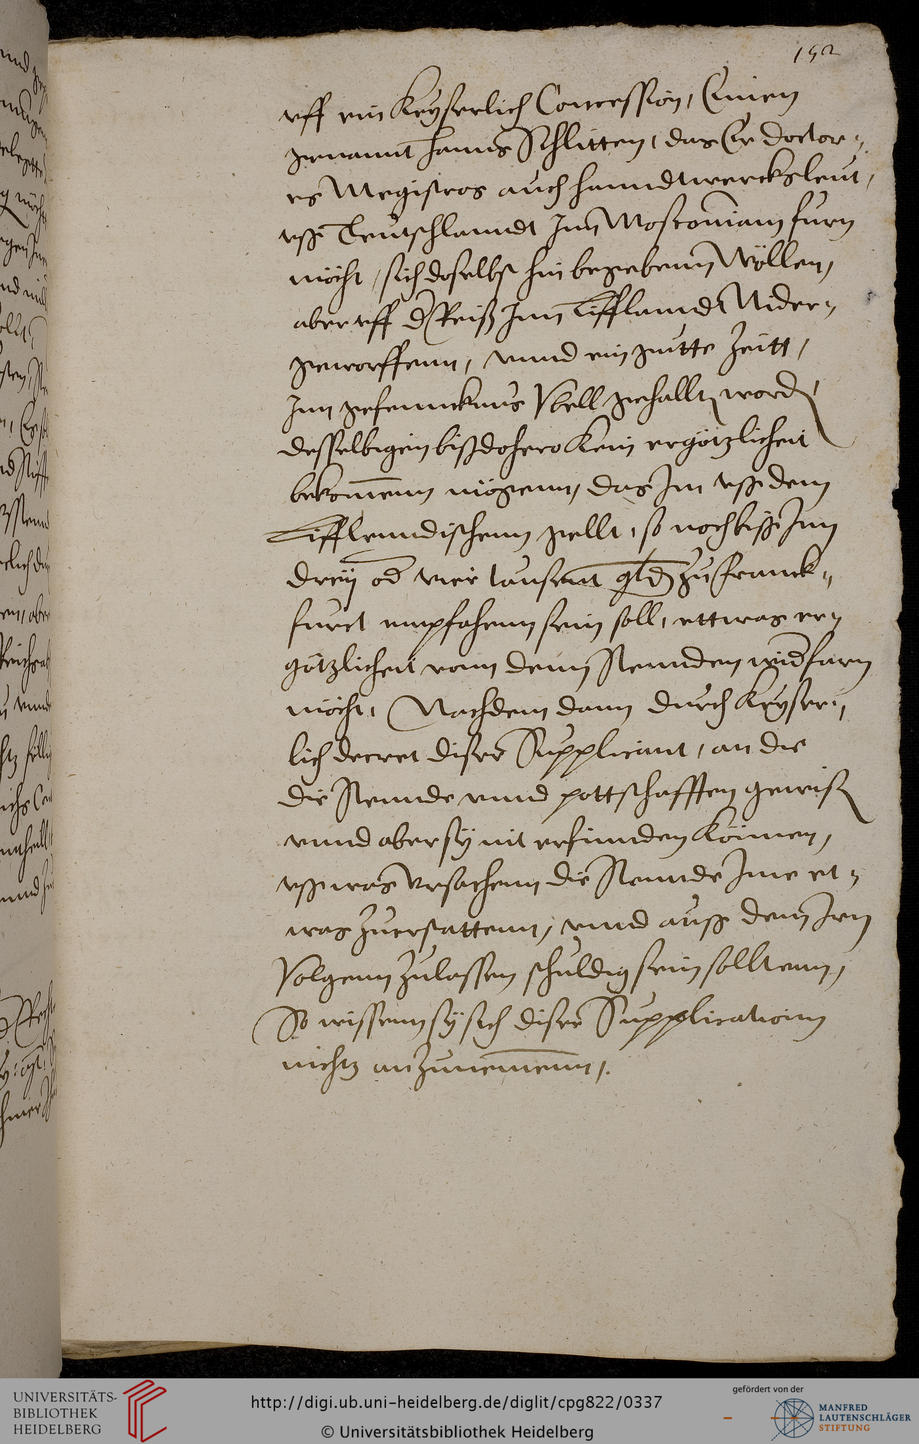 192
vff ein Keyserlich Concession, Einen
genannt Hanns Schlitten, das Er doctor-
es Megistros auch hanndtwercksleut,
vsß Teutschlanndt Inn Mosconiam furn
möcht, sich doselbst hin begebenn Wöllen,
aber vff d Reiß Inn Lifflandt Nider-
geworffenn, vnnd ein gutte Zeitt,
Inn gefenncknus Vbell gehalltn wordn
desselbigen bißdohero Kein ergötzlicheit
bekommenn mögenn, das Im vsß dem
Lifflendischenn gellt, so noch biß Inn
dreÿ od vier tausent gld zu Franck-
furt empfahenn sein soll, ettwas er-
götzlicheit vonn denn Stennden widfarn
möcht, Nachdem dann durch Keyser-
lich decret diser Supplicant, an die
die Stennde vnnd pottschafften gewisn
vnnd aber sy nit erfinnden Können,
vsß was Vrsachenn die Stennde Ime et-
was Zuerstattenn, vnnd auß dem Irn
Volgenn Zulassen schuldig sein solltenn,
So wissenn sÿ sich diser Supplicationn
nichtz anzunemenn.
UNIVERSITÄTS-
BIBLIOTHEK
HEIDELBERG
http://digi.ub.uni-heidelberg.de/diglit/cpg822/0337
© Universitätsbibliothek Heidelberg
gefördert von der
MANFRED
LAUTENSCHLÄGER
STIFTUNG